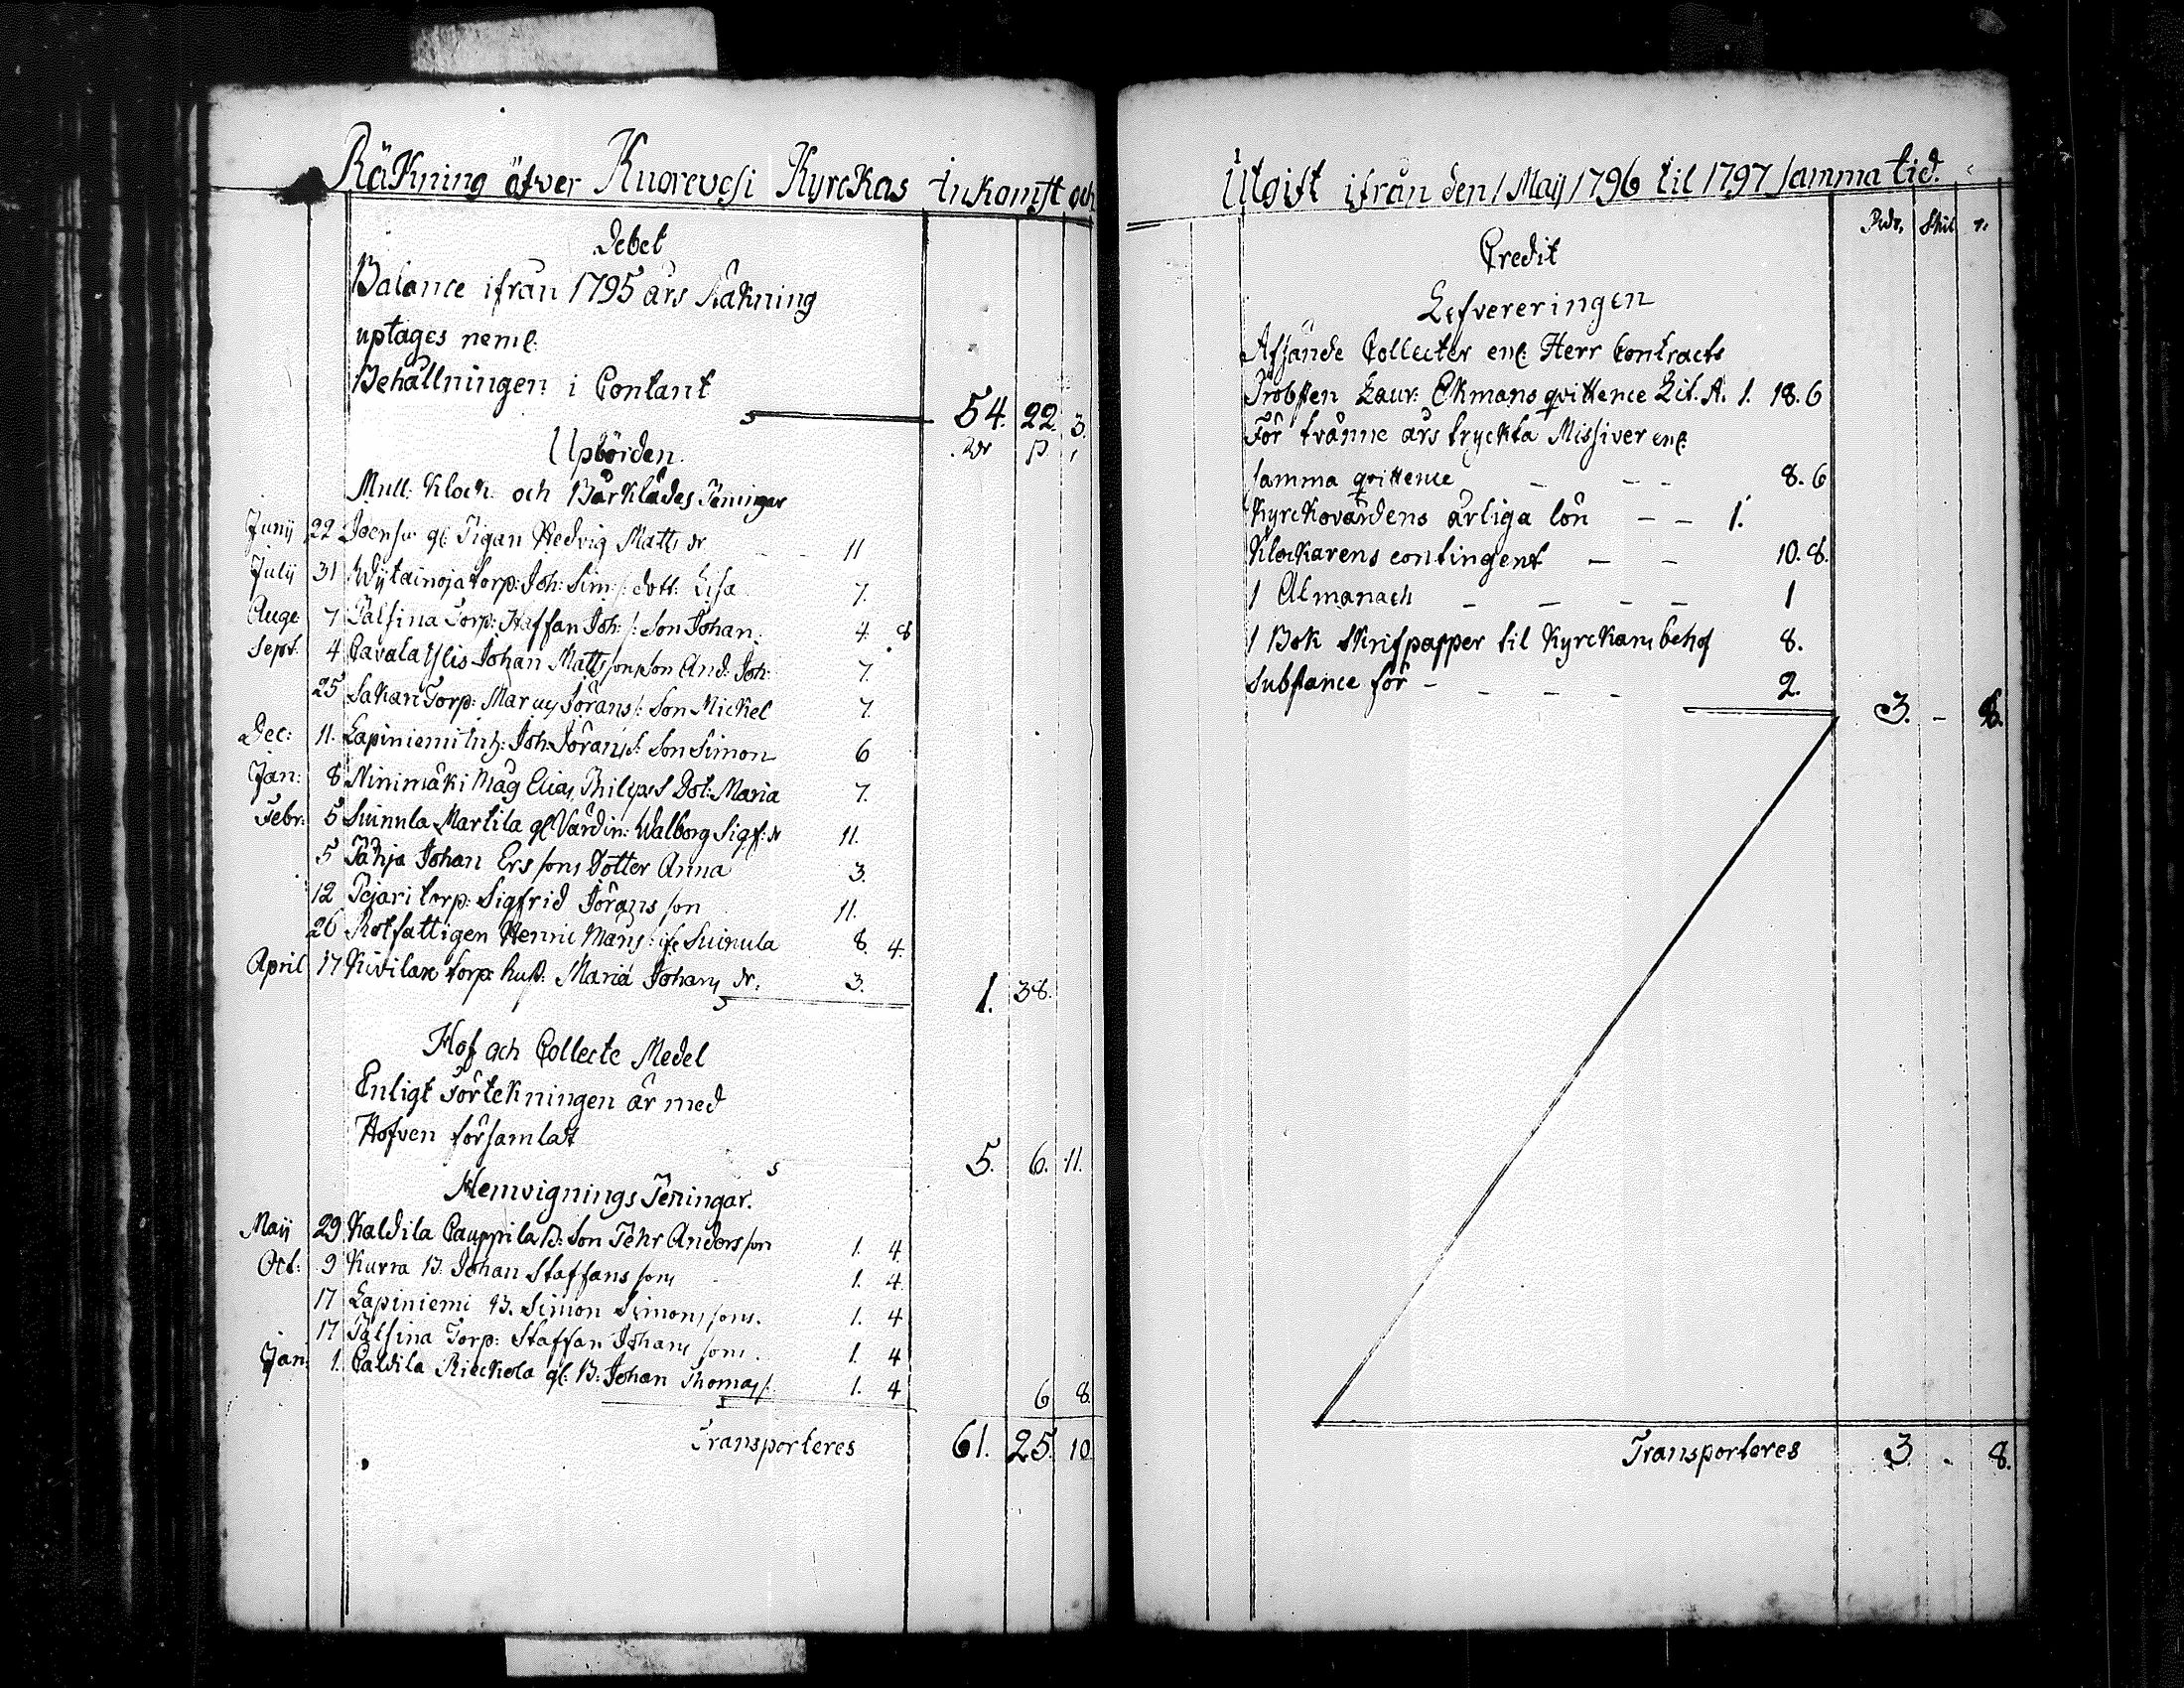 Räkning öfver Kuorevesi Kyrckas Inkomst och
Debet
Balance ifrån 1795 års Räkning
uptages neml:
Behållningen i Contant 54. 22. 3.
Upbörden. Rdr ß r
Mull: Klock. och Bårklädes Peningar
Junij 22 gl: Pigan Hedvig Matts dr - - 11
Julij 31 torp: Joh: Sim: s: dott: Lisa 7.
Aug: 7 Palsina Torp: Staffan Joh: s: Son Johan. 4. 8
Sept. 4 Pavala Ylis Johan Mattssons Son And: Joh: 7.
25 Sakari Torp: Jörans s: Son Mickel 7.
Dec: 11. Lapiniemi Inh: Joh: Jörans s: Son Simon 6
Jan: 8 Ninimäki Måg Elias Philips s Dot: Maria 7.
Febr: 5 Suinula Martila gl. Värdin: Walborg Sigf: dr 11.
5 Pähja Johan Ers sons Dotter Anna 3.
12 Pejari torp: Sigfrid Jörans son 11.
26 Rotfattigen Henric Mans s: ifr Suinula 8. 4.
April 17 Kivilax torp: hust: Maria Johans dr. 3. 1. 38.
Hof och Collecte Medel
Enligt Förtekningen är med
Hofven församlat 5. 6. 11.
Hemvignings Peningar.
Maij 29 Kaldila Pauppila B: Son Pehr Andersson 1. 4.
Oct: 9 Kurra B. Johan Staffans sons 1. 4.
17 Lapiniemi B. Simon Simons sons. 1. 4
17 Palsina Torp: Staffan Johans sons. 1. 4
Jan: 1. Paldila Rieckola gl: B: Johan Thomas s: 1. 4 6 8.
Transporteres 61. 25. 10
Utgift ifrån den 1 Maij 1796 til 1797 samma tid.
Rdr. Skil r.
Credit
Lefvereringen
Afsände Collecter enl: Herr Contracts
Probsten Laur: Ekmans qvittence Lit. A. 1. 18. 6
För tvänne års tryckta Missiver enl:
samma qvittence - - - 8. 6
Kyrckovärdens årliga lön - - 1.
Klockarens contingent - - 10. 8.
1 Almanach - - - - 1
1 Bok Skrifpapper til Kyrckans behof 8.
Substance för - - - - 2. 3. - 8.
Transporteres 3. - 8.